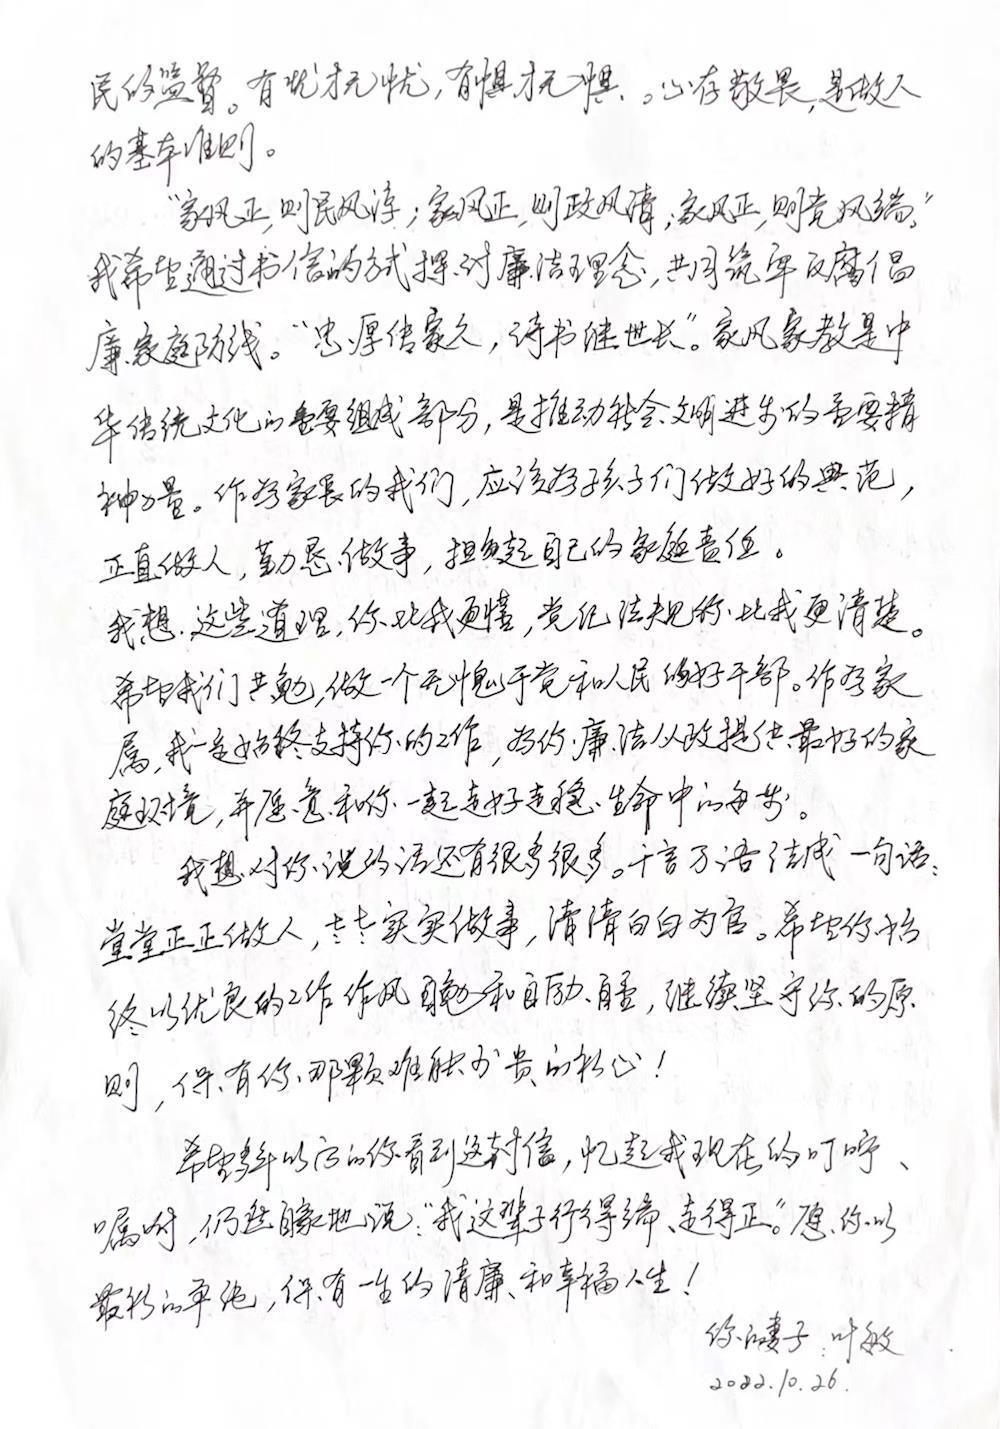 民的监督。有忧才无忧，有惧才无惧。心存敬畏，是做人
的基本准则。
“家风正，则民风淳；家风正，则政风清；家风正，则党风端。”
我希望通过书信的方式探讨廉洁理念，共同筑牢反腐倡
廉家庭防线。“忠厚传家久，诗书继世长”。家风家教是中
华传统文化的重要组成部分，是推动社会文明进步的重要精
神力量。作为家长的我们，应该为孩子们做好的典范，
正直做人，勤恳做事，担负起自己的家庭责任。
我想，这些道理，你比我更懂，党纪法规你比我更清楚。
希望我们共勉，做一个无愧于党和人民的好干部。作为家
属，我一定始终支持你的工作，为你廉洁从政提供最好的家
庭环境，并愿意和你一起走好走稳生命中的每步。
我想对你说的话还有很多很多。千言万语结成一句话：
堂堂正正做人，老老实实做事，清清白白为官。希望你始
终以优良的工作作风自勉和自励、自重，继续坚守你的原
则，保有你那颗难能可贵的初心！
希望多年以后的你看到这封信，忆起我现在的叮咛、
嘱咐，仍然自豪地说：“我这辈子行得端、走得正。”愿你以
最初的单纯，保有一生的清廉、和幸福人生！
你的妻子：叶敏
2022.10.26.